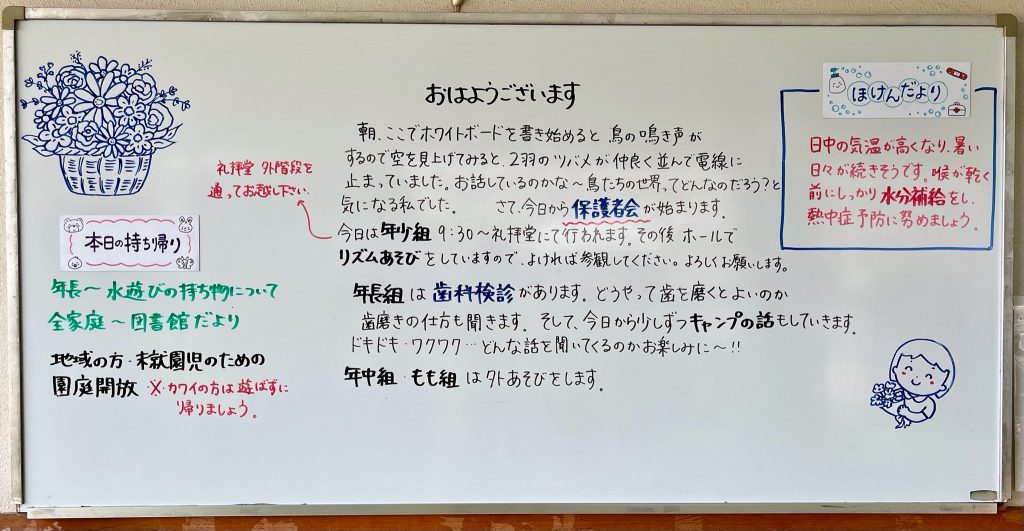 おはようございます
朝、ここでホワイトボードを書き始めると 鳥の鳴き声が
するので空を見上げてみると、2羽のツバメが仲良く並んで電線に
止まっていました。お話しているのかな〜鳥たちの世界ってどんなのだろう?と
気になる私でした。 さて、今日から保護者会が始まります。
今日は年少組 9:30〜礼拝堂にて行われます。その後 ホールで
リズムあそびをしていますので、よければ参観してください。よろしくお願いします。
年長組は歯科検診があります。どうやって歯を磨くとよいのか
歯磨きの仕方も聞きます。そして、今日から少しずつキャンプの話もしていきます。
ドキドキ・ワクワク…どんな話を聞いてくるのかお楽しみに〜!!
年中組・もも組は外あそびをします。
礼拝堂 外階段を
通ってお越し下さい。
本日の持ち帰り
年長〜水遊びの持ち物について
全家庭〜図書館だより
地域の方・未就園児のための
園庭開放 ※カワイの方は遊ばずに
帰りましょう。
ほけんだより
日中の気温が高くなり、暑い
日々が続きそうです。喉が乾く
前にしっかり水分補給をし、
熱中症予防に努めましょう。